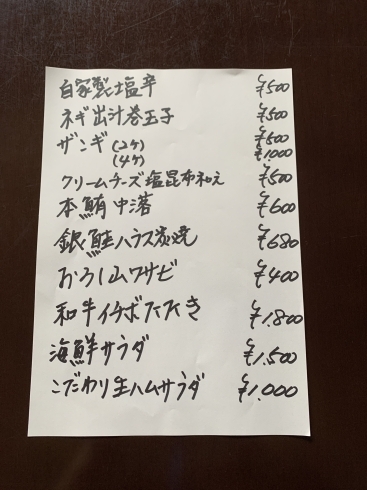 自家製塩辛 ¥500
ネギ出汁巻玉子 ¥500
ザンギ (2ケ) ¥500
(4ケ) ¥1000
クリームチーズ塩昆布和え ¥500
本鮪中落 ¥600
銀鮭ハラス炭焼 ¥680
おろし山ワサビ ¥400
和牛イチボたたき ¥1.800
海鮮サラダ ¥1.500
こだわり生ハムサラダ ¥1.000